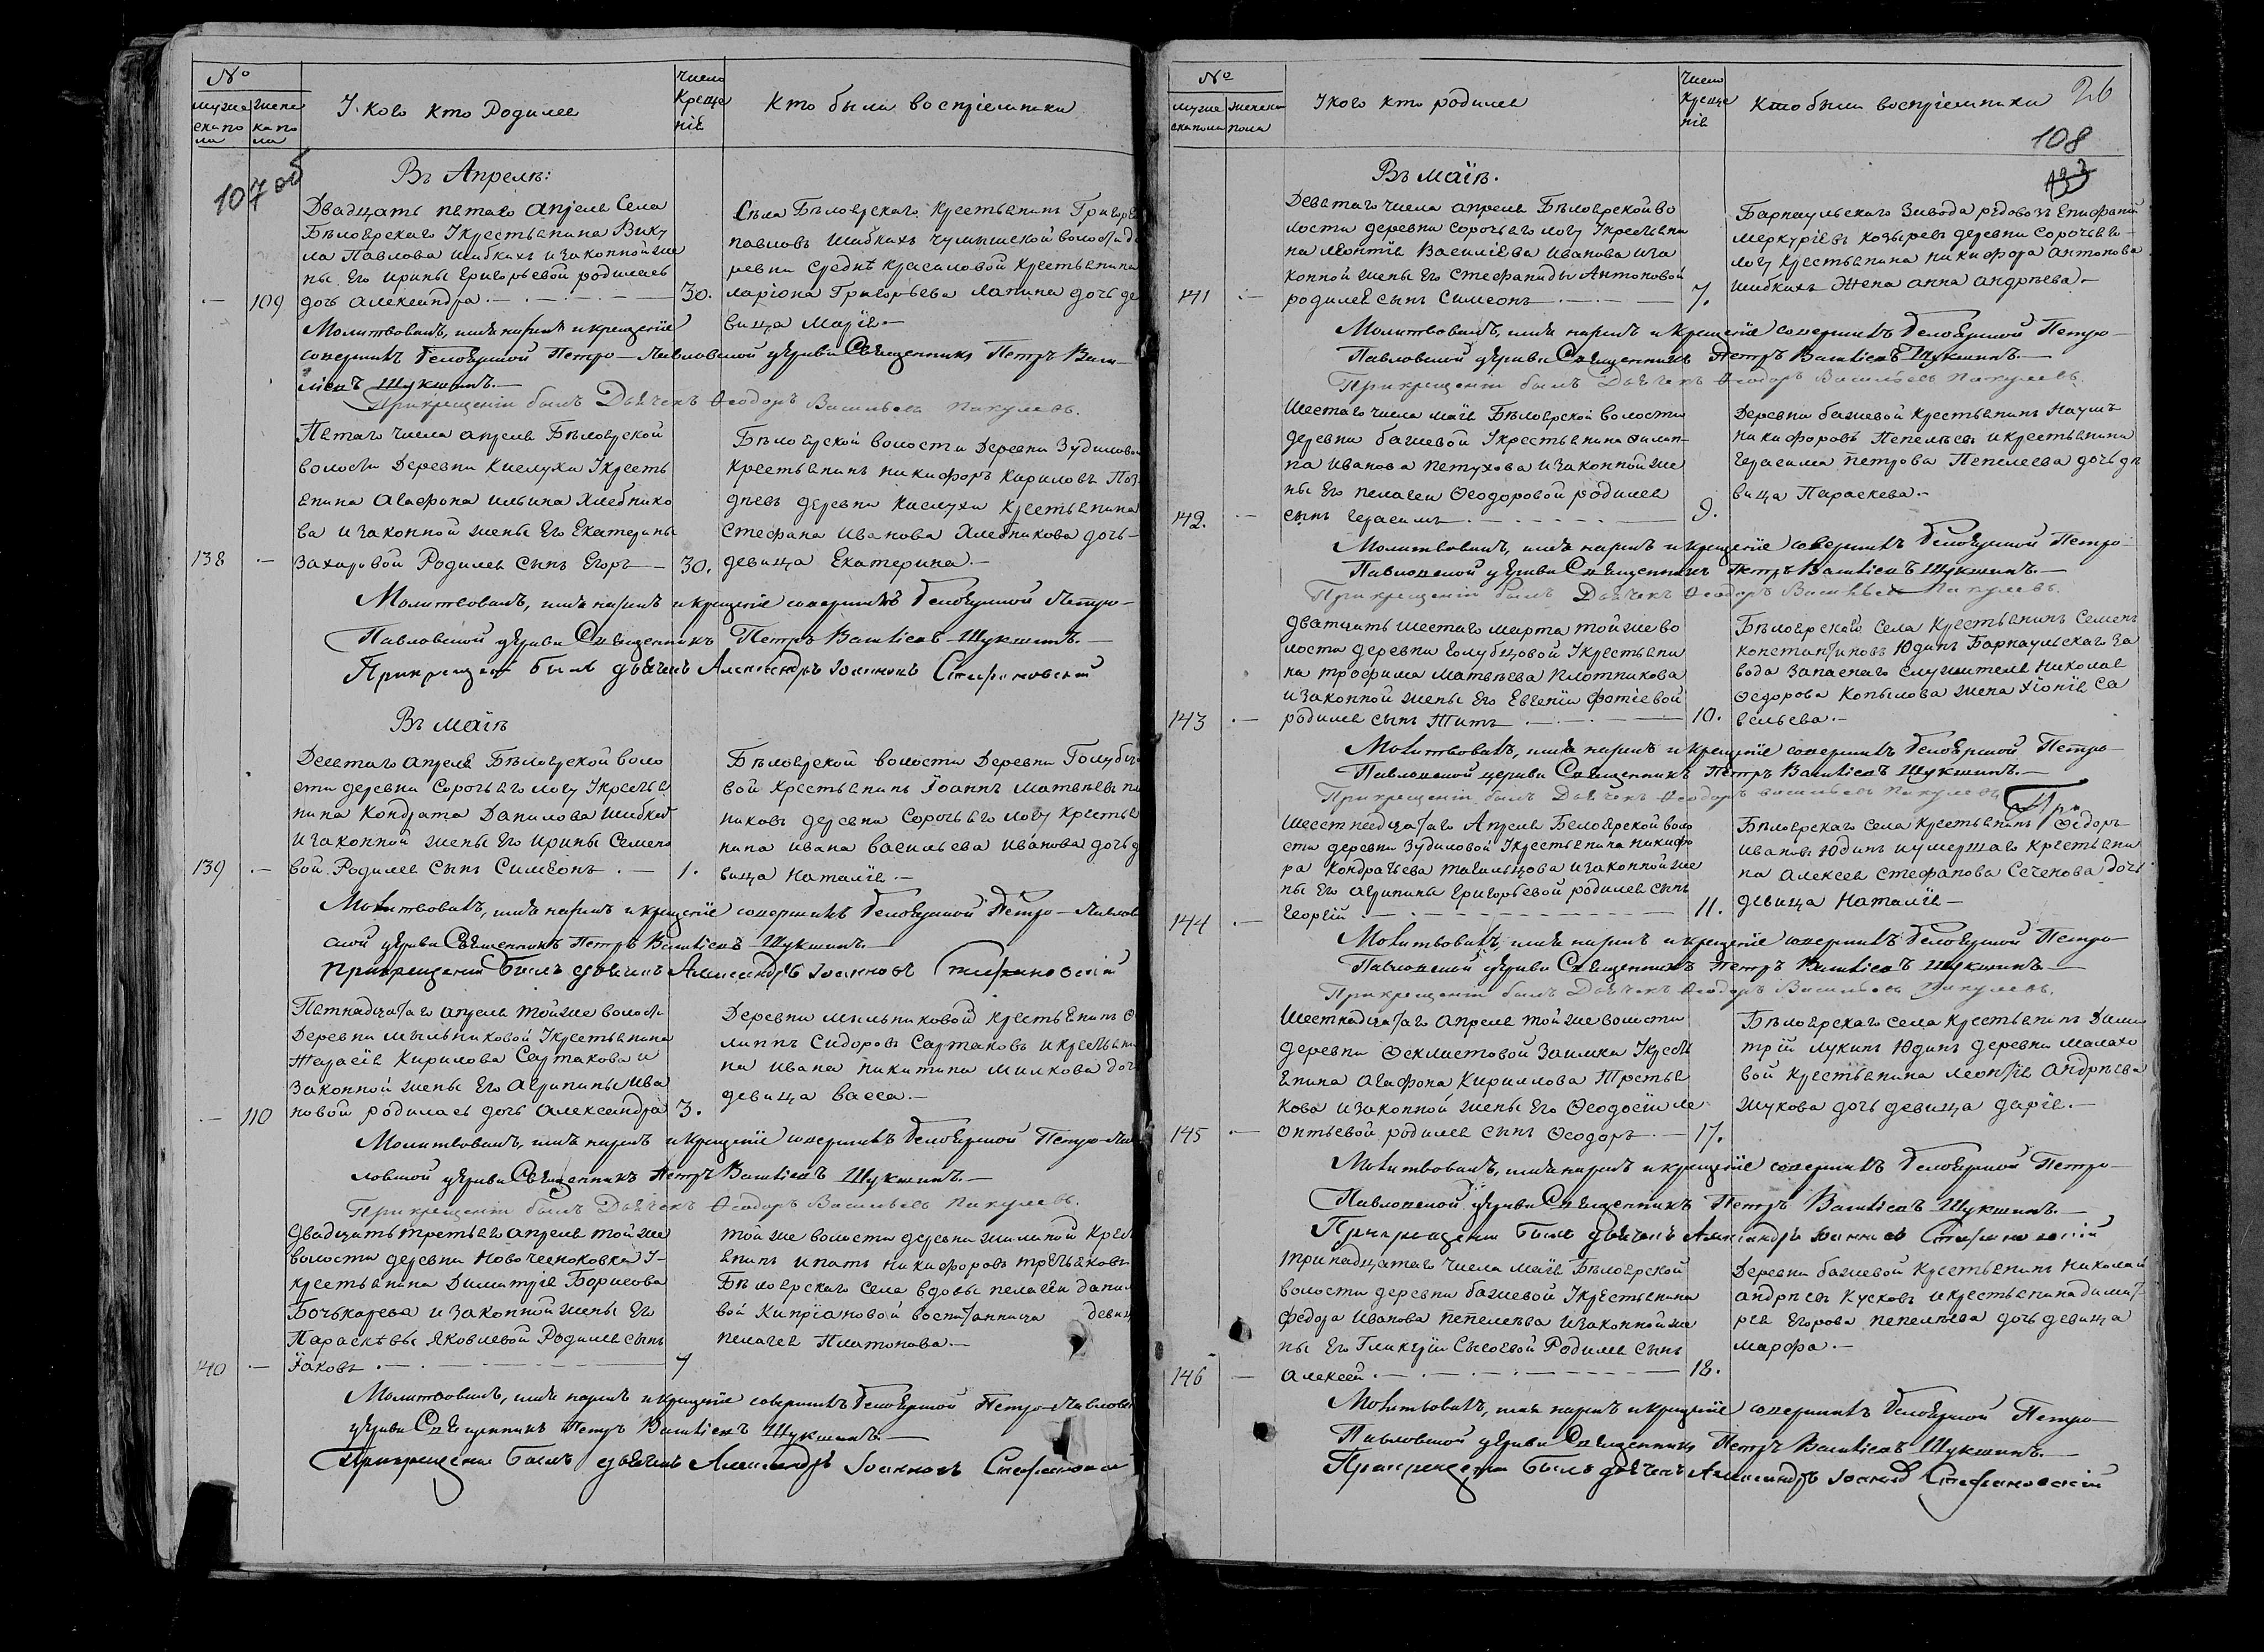 №
муже
ска по
ла
жене
ка по
ла
У кого кто Родилсѧ
Число
Креще
нiѧ
Кто были воспрiемники
107 об
Въ Апрелѣ:
Двадцать пѧтаго апрелѧ Села
Бѣлоѧрскаго Укрестьѧнина Вику
ла Павлова Шибкихъ изаконной же
ны Его Ирины Григорьевой родилась
109 дочь александра 30.
Села Бѣлоѧрскаго Крестьѧнинъ Григорей
павловъ Шибкихъ Чумышской волости де
ревни Средне Красиловой Крестьѧнина
ларiона Григорьева Лапина дочь де
вица Марiѧ.—
Молитвовалъ, имя нарекъ и крещенiе
совершилъ Белоярской Петро-Павловской церкви Священникъ Петръ Васи-
лiевъ Шукшинъ.—
При крещенiи былъ Дьячекъ Ѳеодоръ Васильевъ Пикулевъ.
Пѧтаго числа апрелѧ Бѣлоѧрской
волости Деревни Кислухи Укресть
ѧнина Агафона Ильина Хлебнико
ва изаконной жены Его Екатерины
138 Захаровой Родилсѧ сынъ Егоръ — 30.
Бѣлоѧрской волости Деревни Зудиловой
Крестьѧнинъ никифоръ Кириловъ Поз
днѣвъ деревни Кислухи Крестьѧнина
Стефана Иванова Хлебникова дочь
девица Екатерина.—
Молитвовалъ, имя нарекъ и крещенiе совершилъ Белоярской Петро-
Павловской церкви Священникъ Петръ Васильевъ Шукшинъ.—
При крещенiи былъ дьячекъ Александръ Iоанновъ Стефановскiй
Въ маiѣ
Десѧтаго апрелѧ Бѣлоѧрской воло
сти деревни Сорочьего логу Укрестьѧ
нина Кондрата Данилова Шибких
изаконной жены Его Ирины Семено
139 вой Родилсѧ сынъ Симеонъ.— 1.
Бѣлоѧрской волости Деревни Голубцо
вой Крестьѧнинъ Iоаннъ Матвѣевъ пло
никовъ деревни Сорочьего логу Крестьѧ
нина ивана васильева Иванова дочь д
вица Наталiѧ.—
Молитвовалъ, имя нарекъ и крещенiе совершилъ Белоярской Петро-Павлов
ской церкви Священникъ Петръ Васильевъ Шукшинъ.—
При крещенiи былъ дьячекъ Александръ Iоанновъ Стефановскiй
Пѧтнадцатаго апрелѧ Тойже волости
Деревни мыльниковой Укрестьѧнина
Кирилова Сартакова и
Законной жены Его Агрипины Ива
110 новой родилась дочь Александра 3.
Деревни мыльниковой крестьѧнинъ Ѳ
липпъ Сидоровъ Сартаковъ икрестьѧни
на Ивана никитина Милкова доч
девица васса.—
Молитвовалъ, имя нарекъ и крещенiе совершилъ Белоярской Петро-Пав
ловской церкви Священникъ Петръ Васильевъ Шукшинъ.—
При крещенiи былъ Дьячекъ Ѳеодоръ Васильевъ Пикулевъ.
Двадцать третьего апрелѧ той же
волости деревни Новочесноковка У-
крестьѧнина Димитрiѧ Борисова
Бочькарева и законной жены Его
Параскѣвы Яковлевой Родилсѧ сынъ
140 Iаковъ 7
той же волости деревни жилиной Крест
ѧнинъ ипатъ никифоровъ третьѧковъ
Бѣлоѧрскаго села вдовы пелагеи дани
вой Кипрiановой воспитанница девиц
пелагеѧ Платонова.—
Молитвовалъ, имя нарекъ и крещенiе совершилъ Белоярской Петро-Павловс
церкви Священникъ Петръ Васильевъ Шукшинъ.—
При крещенiи былъ дьячекъ Александръ Iоанновъ Стефановскiй
№
муже
ска пола
женска
пола
Укого кто родилсѧ
Число
креще
нiѧ
Кто были воспрiемники
26
108
Въ маiѣ.
Девѧтаго числа апрелѧ Бѣлоѧрской во
лости деревни Сорочьего логу Укрестьѧни
на Леонтiѧ Василiева Иванова иза
конной жены Его Стефаниды Антоновой
141 родилсѧ сынъ Симеонъ 7.
Барнаульскаго Завода рѧдовой Епифанiй
Меркурiевъ Козыревъ деревни Сорочьего
логу крестьѧнина никифора антонова
Шибкихъ Жена анна андрѣева.—
Молитвовалъ, имя нарекъ и крещенiе совершилъ Белоярской Петро-
Павловской церкви Священникъ Петръ Васильевъ Шукшинъ.—
При крещенiи былъ Дьячекъ Ѳеодоръ Васильевъ Пикулевъ.
Шестаго числа маiѧ Бѣлоѧрской волости
деревни бажевой Укрестьѧнина филип-
па Иванова петухова изаконной же
ны Его пелагеи Ѳеодоровой родилсѧ
142. сынъ Герасимъ 9.
Деревни бажевой крестьѧнинъ Наумъ
никифоровъ Пепелѣевъ икрестьѧнина
Герасима петрова Пепелеева дочь дѣ
вица Параскева.—
Молитвовалъ, имя нарекъ и крещенiе совершилъ Белоярской Петро-
Павловской церкви Священникъ Петръ Васильевъ Шукшинъ.—
При крещенiи былъ Дьячекъ Ѳеодоръ Васильевъ Пикулевъ.
Дватцать шестаго марта той же во
лости деревни Голубцовой Укрестьѧни
на трофима Матвѣева плотникова
изаконной жены Его Евгенiи фотiевой
143 родилсѧ сынъ Титъ 10.
Бѣлоѧрскаго села Крестьѧнинъ Семенъ
константиновъ Юдинъ Барнаульскаго за
вода запаснаго служителѧ Николаѧ
Ѳедорова Копылова жена Хiонiѧ Са
вельева.—
Молитвовалъ, имя нарекъ и крещенiе совершилъ Белоярской Петро-
Павловской церкви Священникъ Петръ Васильевъ Шукшинъ.—
При крещенiи былъ Дьячекъ Ѳеодоръ васильевъ Пикулевъ
Шестнадцатаго Апрелѧ Белоѧрской воло
сти деревни Зудиловой Укрестьѧнина никифо
ра Кондратьева изаконной же
ны Его агрипины Григорьевой родилсѧ сынъ
144 Георгiй 11.
Бѣлоѧрскаго села крестьѧнинъ Ѳедоръ
Ивановъ Юдинъ иумершаго крестьѧни
на алексеѧ стефанова Сеченова дочь
девица Наталiѧ—
Молитвовалъ, имя нарекъ и крещенiе совершилъ Белоярской Петро-
Павловской церкви Священникъ Петръ Васильевъ Шукшинъ.—
При крещенiи былъ Дьячекъ Ѳеодоръ Васильевъ Пикулевъ.
Шестнадцатаго апрелѧ той же волости
деревни Ѳеклистовой Заимка Укресть
ѧнина агафона Кириллова Третьѧ
кова изаконной жены Его Ѳеодосiи ле
145 онтьевой родилсѧ сынъ Ѳеодоръ 17.
Бѣлоѧрскаго села Крестьѧнинъ Дими
трiй Лукинъ Юдинъ деревни малахо
вой крестьѧнина леонтiѧ Андрѣева
Жукова дочь девица дарiѧ.—
Молитвовалъ, имя нарекъ и крещенiе совершилъ Белоярской Петро-
Павловской церкви Священникъ Петръ Васильевъ Шукшинъ.—
При крещенiи былъ дьячекъ Александръ Iоанновъ Стефановскiй
Тринадцатаго числа маiѧ Бѣлоѧрской
волости деревни бажевой Укрестьѧнина
федора Иванова пепелѣева изаконной же
ны Его Гликерiи Сысоевой Родилсѧ сынъ
146 алексей 18.
Деревни бажевой крестьѧнинъ Николай
андрѣевъ Кусковъ икрестьѧнина димит
рiѧ Егорова пепелѣева дочь девица
марфа.—
Молитвовалъ, имя нарекъ и крещенiе совершилъ Белоярской Петро-
Павловской церкви Священникъ Петръ Васильевъ Шукшинъ.—
При крещенiи былъ дьячекъ Александръ Iоанновъ Стефановскiй